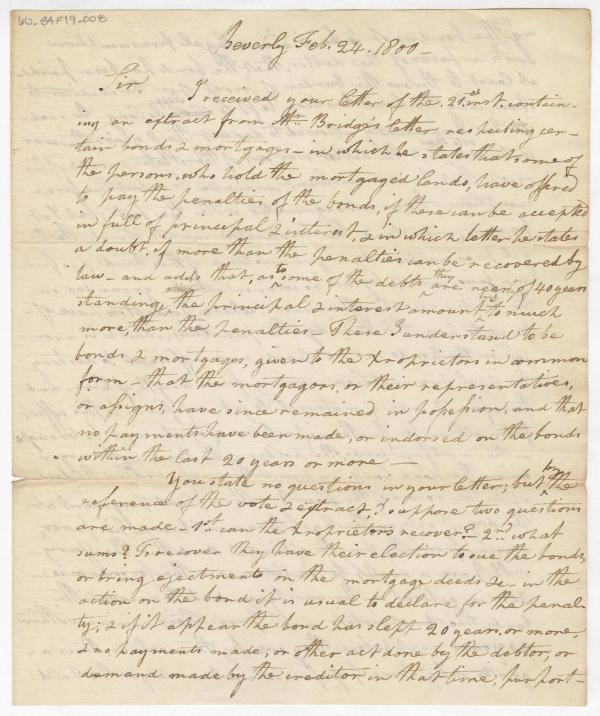 60-84F19-008
Beverly Feb. 24. 1800 –
Sir. I received your letter of the 21st inst. contain-
ing an extract from Mr. Bridge's letter respecting cer-
tain bonds & mortgages – in which he states that some of
the persons, who hold the mortgaged lands, have offered
to pay the penalties of the bonds, if these can be accepted
in full of principal & interest, & in which letter he states
a doubt, if more than the penalties can be recovered by
law – and adds that, as to some of the debts they are near, of 40 years
standing, the principal & interest amount to much
more, than the penalties – These I understand to be
bonds & mortgages, given to the Proprietors in common
form – that the mortgagors, or their representatives,
or assigns, have since remained in possession, and that
no payments have been made, or indorsed on the bonds
within the last 20 years or more –
You state no questions in your letter; but by the
reference of the vote & extract I suppose two questions
are made – 1st can the Proprietors recover? – 2nd what
sums? To recover they have their election to sue the bonds,
or bring ejectments on the mortgage deeds &c – in the
action on the bond it is usual to declare for the penal-
ty; & if it appear the bond has slept 20 years, or more,
& no payments made, or other act done by the debtor, or
demand made by the creditor in that time, purport-